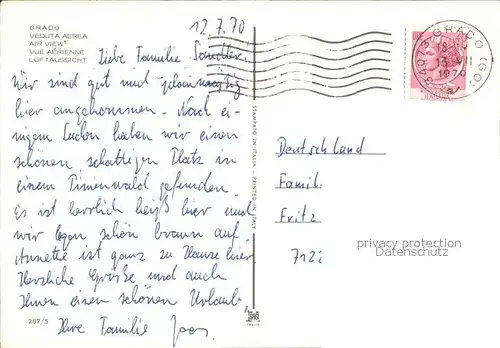 GRADO
VEDUTA AEREA
AIR VIEW
VUE AÉRIENNE
LUFTAUSSICHT
12.7.70
Liebe Familie
Wir sind gut und planmäßig
hier angekommen. Nach ei-
nigem Suchen haben wir einen
schönen schattigen Platz in
einem Pinienwald gefunden.
Es ist herrlich heiß hier und
wir legen schön braun auf.
Annette ist ganz zu Hause hier.
Herzliche Grüße und auch
Ihnen einen schönen Urlaub,
Ihre Familie
287/5
STAMPATO IN ITALIA - PRINTED IN ITALY
GRADO (GO)
13.VII
1970
Deutschland
Famil
Fritz
712
privacy protection
Datenschutz